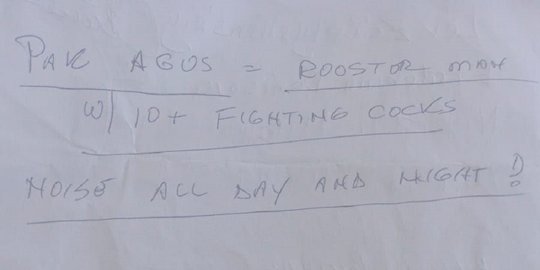 PAK AGUS = ROOSTOR MAN
W/ 10+ FIGHTING COCKS
NOISE ALL DAY AND NIGHT !